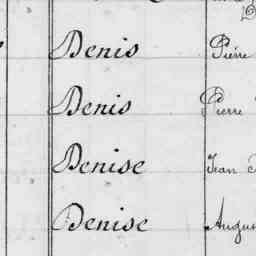 Denis Pierre
Denis Pierre
Denise Jean
Denise Augus